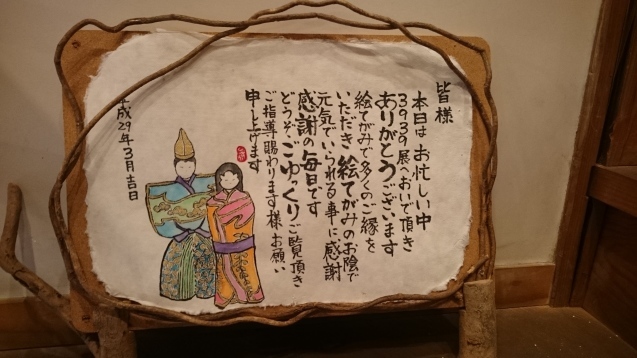 皆様
本日は お忙しい中
3939展へおいで頂き
ありがとうございます
絵てがみで多くのご縁を
いただき 絵てがみのお陰で
元気でいられる事に感謝
感謝の毎日です
どうぞごゆっくりご覧頂き
ご指導賜わります様お願い
申し上げます
平成29年3月吉日